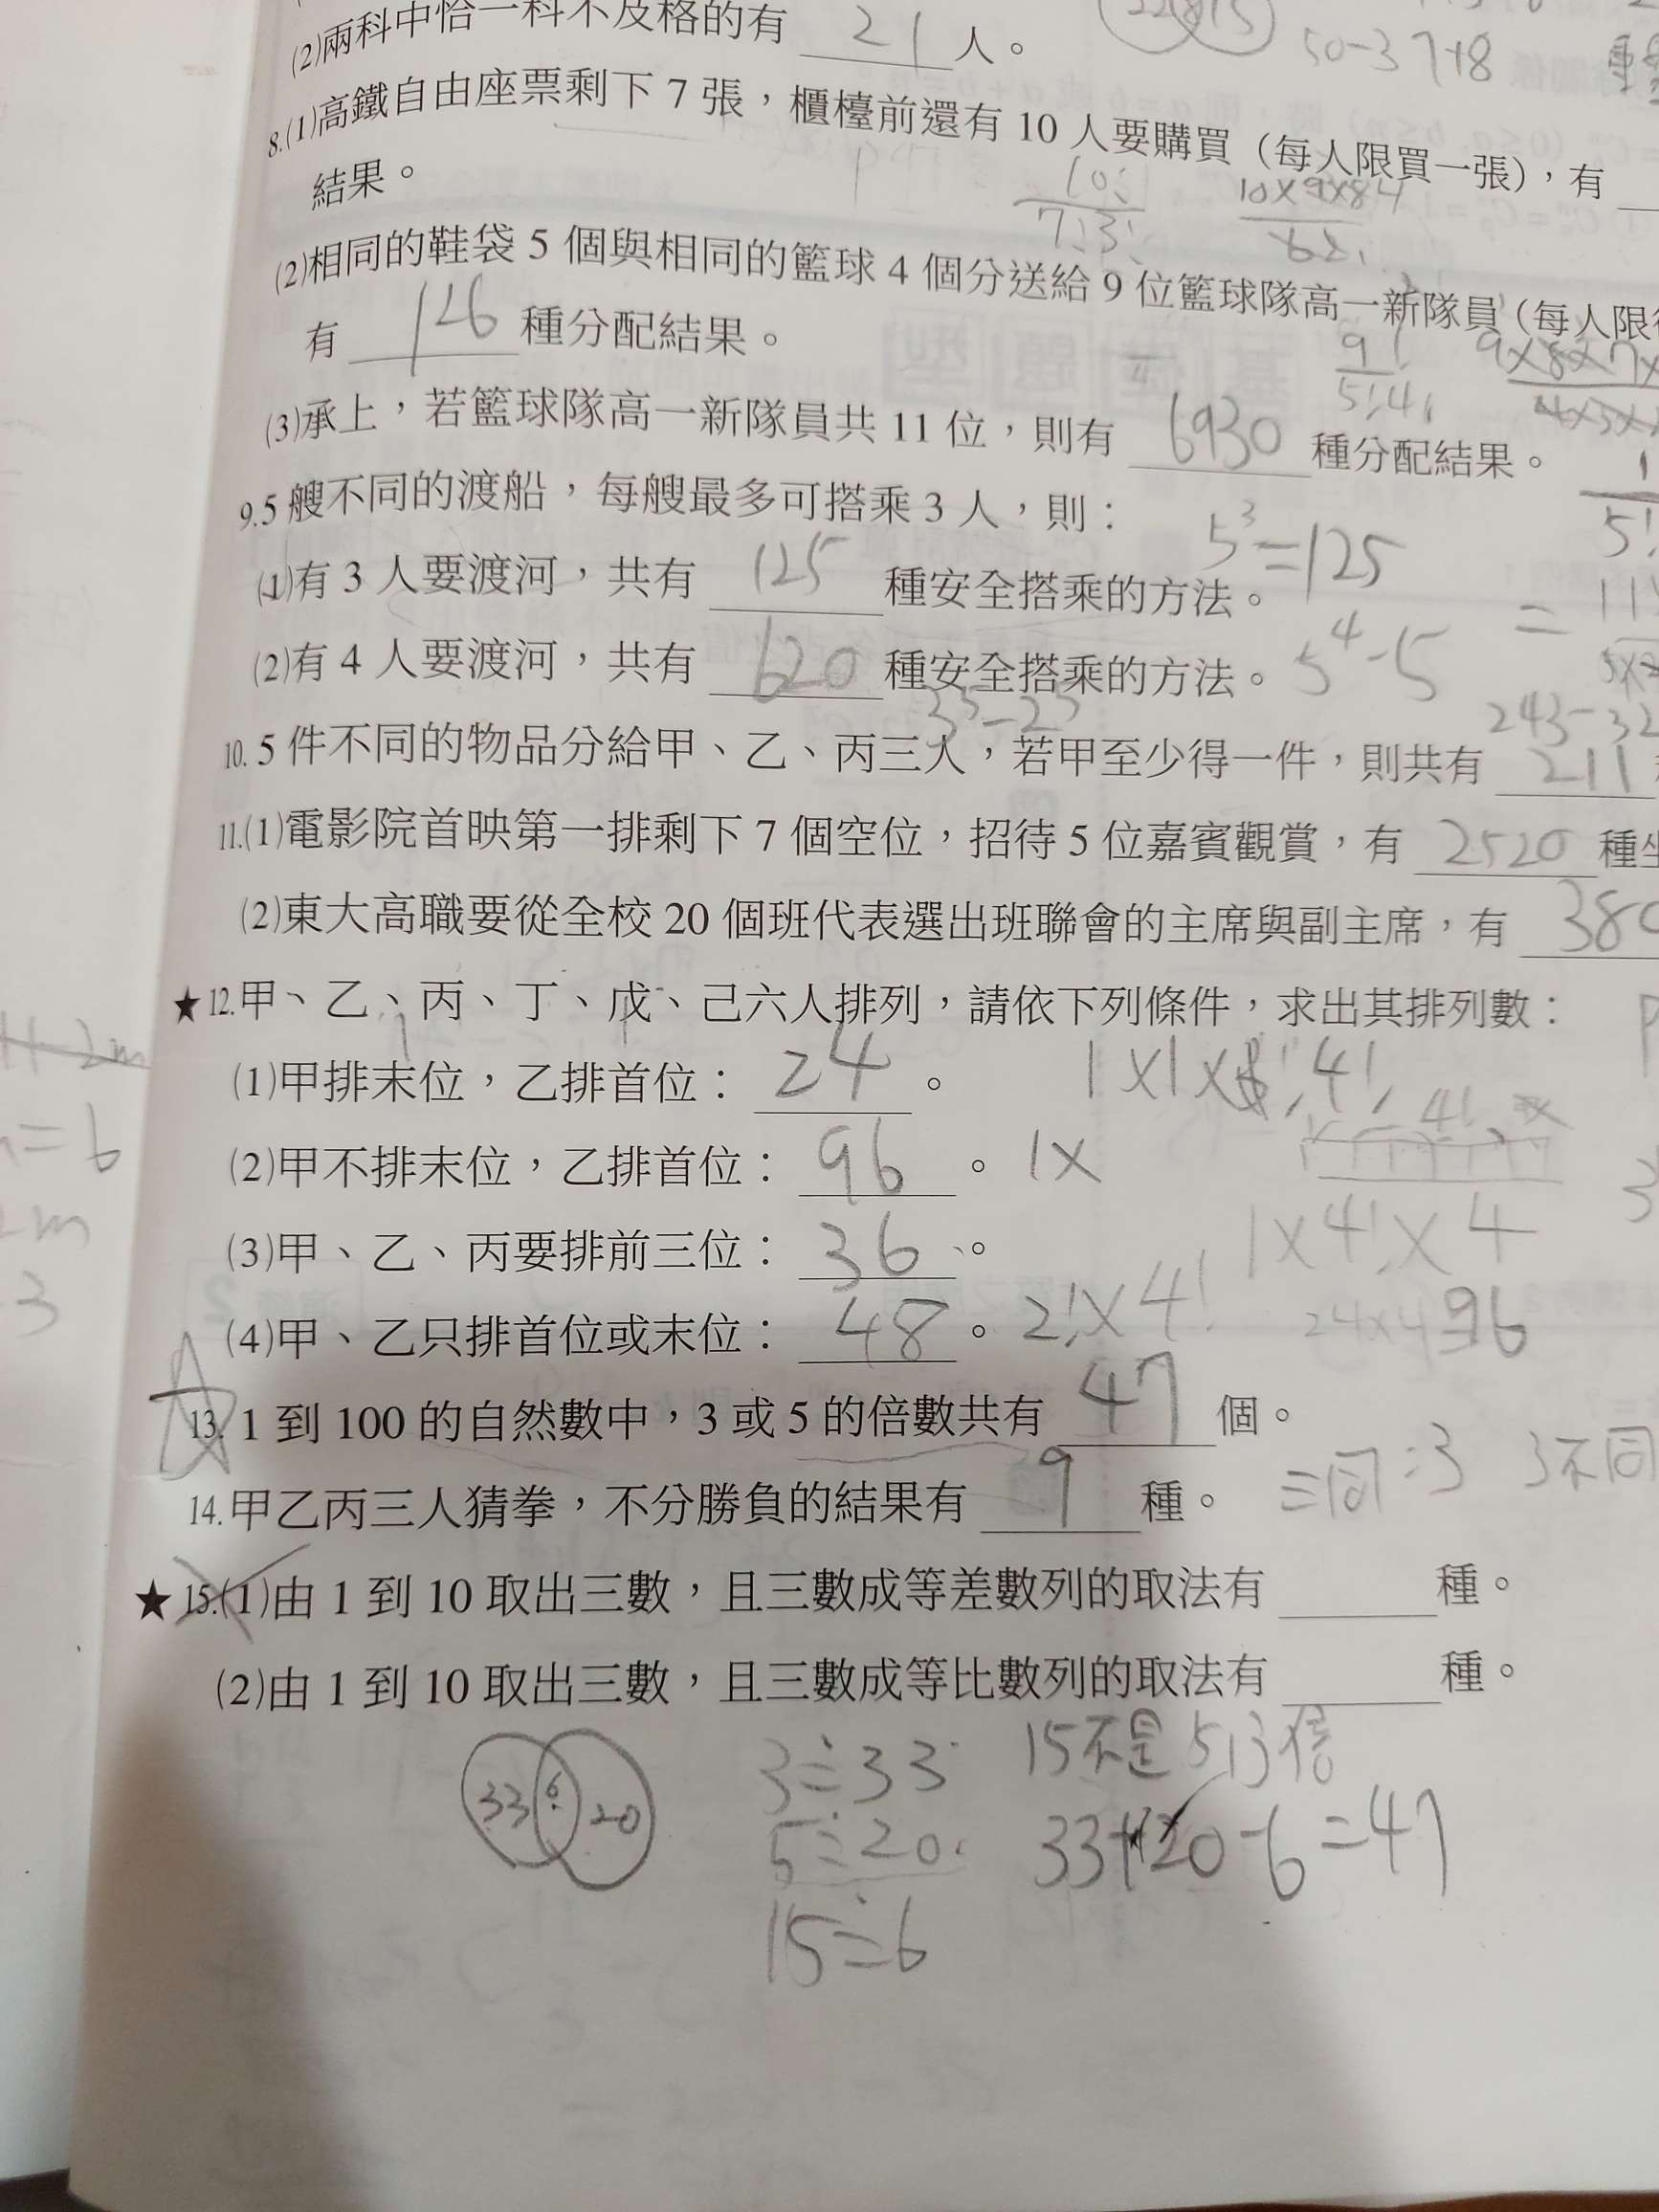 (2)兩科中恰一科不及格的有 21 人。
50-37+8
8.(1)高鐵自由座票剩下 7 張，櫃檯前還有 10 人要購買（每人限買一張），有
結果。
10! 10×9×8
7!3!
(2)相同的鞋袋 5 個與相同的籃球 4 個分送給 9 位籃球隊高一新隊員（每人限
有 126 種分配結果。
9! 9×8×7×
5!4!
(3)承上，若籃球隊高一新隊員共 11 位，則有 6930 種分配結果。
9.5 艘不同的渡船，每艘最多可搭乘 3 人，則：
5³=125
(1)有 3 人要渡河，共有 125 種安全搭乘的方法。
(2)有 4 人要渡河，共有 620 種安全搭乘的方法。 5⁴-5
3⁵-2⁵ 243-32
10. 5 件不同的物品分給甲、乙、丙三人，若甲至少得一件，則共有 211
11.(1)電影院首映第一排剩下 7 個空位，招待 5 位嘉賓觀賞，有 2520 種坐
(2)東大高職要從全校 20 個班代表選出班聯會的主席與副主席，有 380
★12.甲、乙、丙、丁、戊、己六人排列，請依下列條件，求出其排列數：
(1)甲排末位，乙排首位： 24 。 1×1× 4!
(2)甲不排末位，乙排首位： 96 。 1×
1×4!×4
(3)甲、乙、丙要排前三位： 36 。
(4)甲、乙只排首位或末位： 48 。 2!×4! 24×4=96
13. 1 到 100 的自然數中，3 或 5 的倍數共有 47 個。
14.甲乙丙三人猜拳，不分勝負的結果有 9 種。 三同:3 3不同
★15.(1)由 1 到 10 取出三數，且三數成等差數列的取法有 種。
(2)由 1 到 10 取出三數，且三數成等比數列的取法有 種。
33 6 20
3÷33
5÷20
15÷6
15不是513倍
33+20-6=47